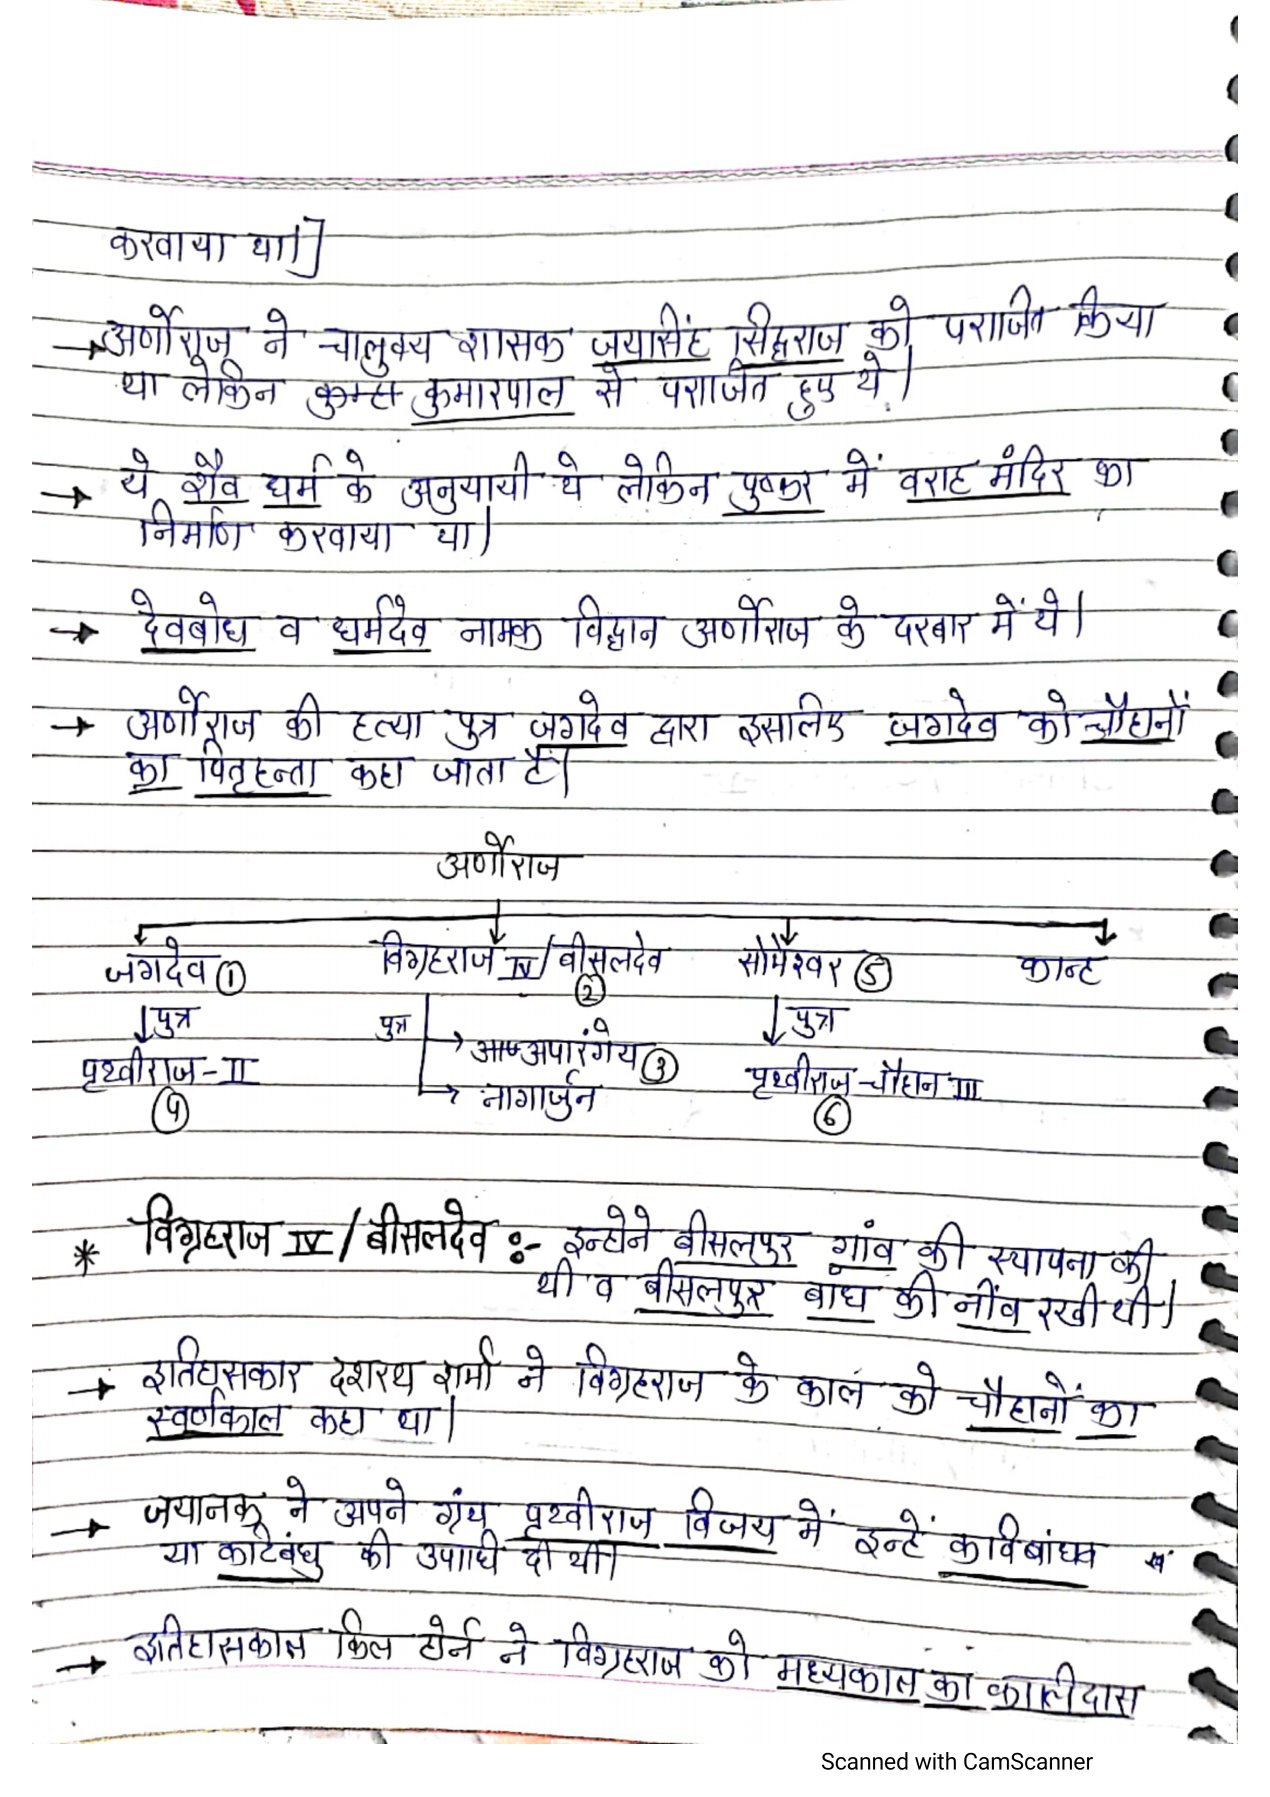 करवाया था।]
→ अर्णोराज ने चालुक्य शासक जयसिंह सिद्धराज को पराजित किया
था लेकिन कुमारपाल से पराजित हुए थे।
→ ये शैव धर्म के अनुयायी थे लेकिन पुष्कर में वराह मंदिर का
निर्माण करवाया था।
→ देवबोध व धर्मदेव नामक विद्वान अर्णोराज के दरबार में थे।
→ अर्णोराज की हत्या पुत्र जगदेव द्वारा इसलिए जगदेव को चौहानों
का पितृहन्ता कहा जाता है।
अर्णोराज
जगदेव ① विग्रहराज IV / बीसलदेव ② सोमेश्वर ⑤ कान्ह
पुत्र पुत्र पुत्र
→ अपारंगेय ③
पृथ्वीराज-II ④ पृथ्वीराज चौहान III ⑥
→ नागार्जुन
* विग्रहराज IV / बीसलदेव :- इन्होने बीसलपुर गांव की स्थापना की
थी व बीसलपुर बांध की नींव रखी थी।
→ इतिहासकार दशरथ शर्मा ने विग्रहराज के काल को चौहानों का
स्वर्णकाल कहा था।
→ जयानक ने अपने ग्रंथ पृथ्वीराज विजय में इन्हें कविबांधव
या कटिबंधु की उपाधि दी थी।
→ इतिहासकार किल होर्न ने विग्रहराज को मध्यकाल का कालीदास
Scanned with CamScanner